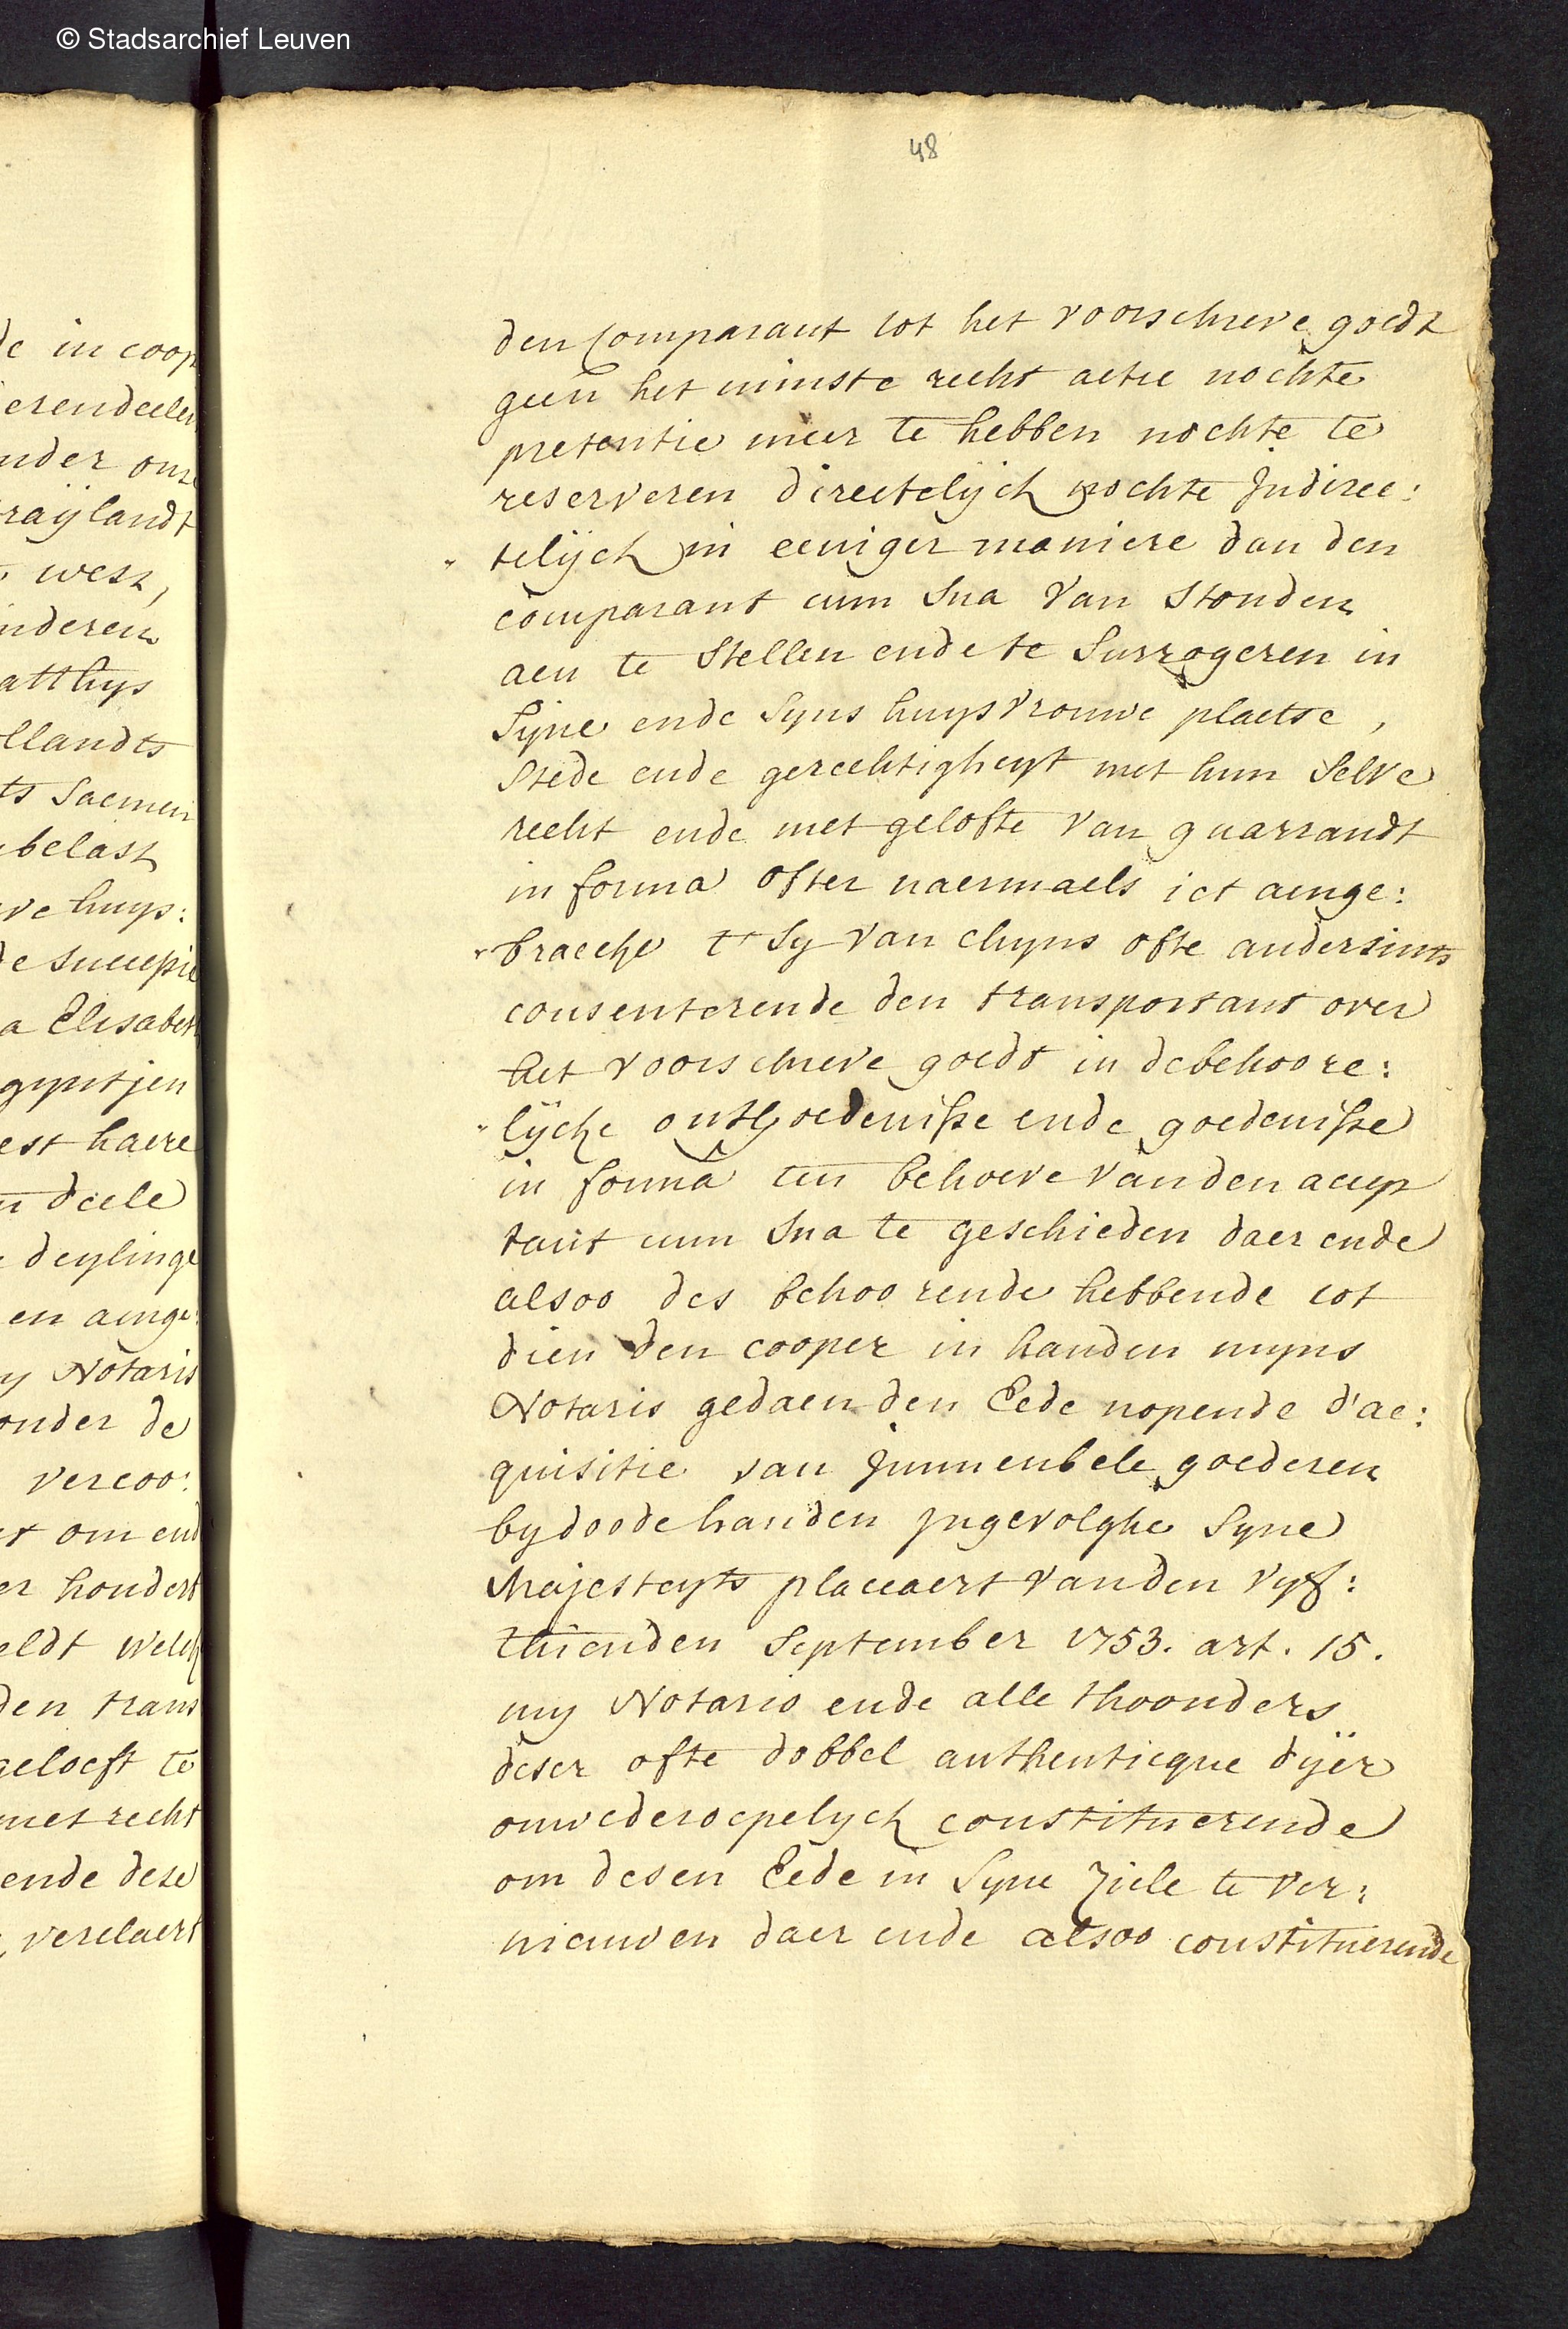 © Stadsarchief Leuven
48
de in coop
erendeelen
nder onse
raylandt
west,
inderen
atthys
llandts
ts saemen
belast
ve huys:
de successie
a Elisabeth
gyntjen
est haere
n deele
deylinge
en ainge:
y Notaris
onder de
vercoo:
t om end
er hondert
eldt welck
den trans
geloeft te
met recht
ende dese
verclaert
den Comparant tot het voorschreve goedt
geen het minste recht actie nochte
pretentie meer te hebben nochte te
reserveren directelijck nochte Jndirec:
telijck in eeniger maniere dan den
comparant cum sua van stonden
aen te stellen ende te surrogeren in
syne ende syns huysvrouwe plaetse,
stede ende gerechtigheyt met hun selve
recht ende met gelofte van guarrandt
in forma ofter naermaels iet ainge:
braecke t'sy van chyns ofte andersints
consenterende den transportant over
het voorschreve goedt in de behoore:
lijcke ontgoedenisse ende goedenisse
in forma ten behoeve vanden accep
tant cum sua te geschieden daer ende
alsoo des behoorende hebbende tot
dien den cooper in handen myns
Notaris gedaen den Eede nopende d'ac:
quisitie van Jmmeubele goederen
by doode handen Jngevolghe syne
Majesteyts placcaert vanden vyf:
thienden September 1753. art. 15.
my Notaris ende alle thoonders
deser ofte dobbel authenticque dijer
onwederoepelyck constituerende
om desen Eede in syne ziele te ver:
nieuwen daer ende alsoo constituerende